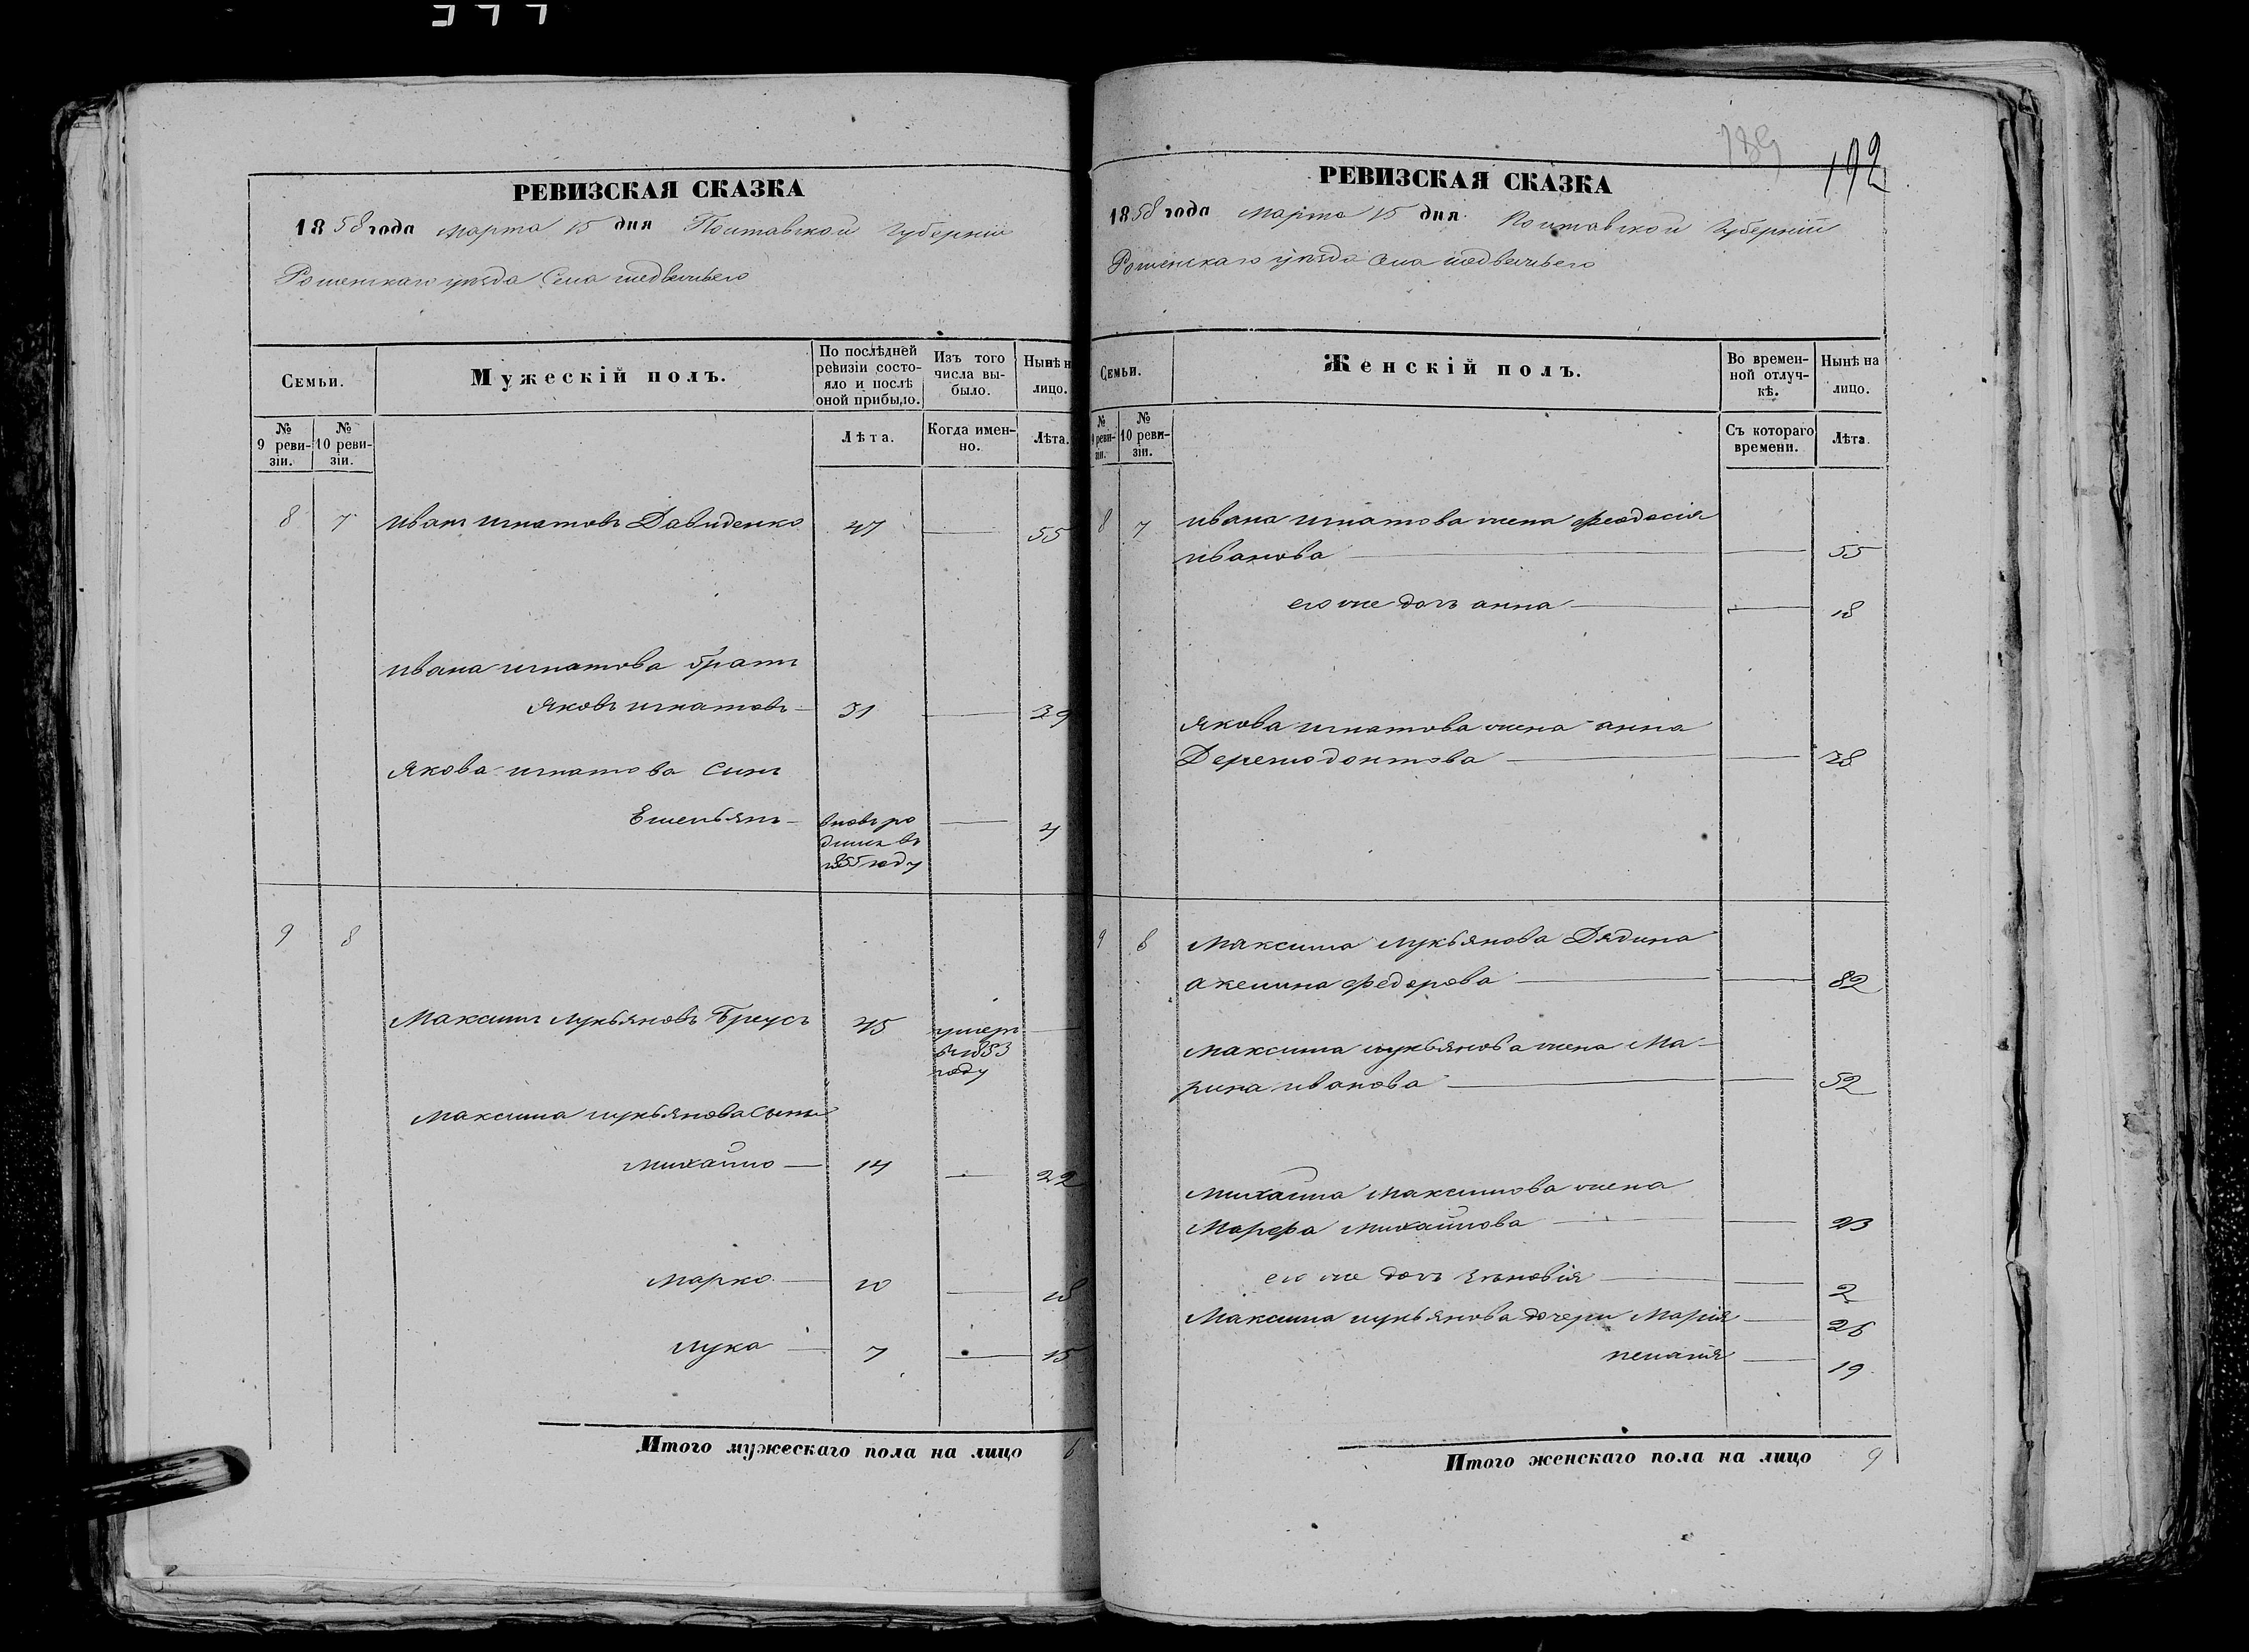 189
192
РЕВИЗСКАЯ СКАЗКА
1858 года марта 15 дня Полтавской Губернии
Роменского уезда Села медвежьего
Семьи.
Мужескій полъ.
По послѣдней ревизіи состояло и послѣ оной прибыло.
Изъ того числа выбыло.
Нынѣ н лицо.
№ 9 ревизіи.
№ 10 ревизіи.
Лѣта.
Когда именно.
Лѣта.
8 7 Иван игнатовъ Давиденко 47 — 55
Ивана игнатова братъ
Яковъ игнатовъ — 31 — 39
Якова игнатова сынъ
Емельянъ — вновь ро — 4
дился въ
1855 году
9 8
Максимъ лукьяновъ Бреусъ 45 умеръ —
въ 1853
году
Максима лукьянова сыны
михайло — 14 — 22
марко — 10 — 18
лука — 7 — 15
Итого мужескаго пола на лицо 6
РЕВИЗСКАЯ СКАЗКА
1858 года марта 15 дня Полтавской Губерніи
Роменскаго уезда Села медвежьего
Семьи.
Женскій полъ.
Во временной отлучкѣ.
Нынѣ на лицо.
№ 9 ревизіи.
№ 10 ревизіи.
Съ котораго времени.
Лѣта.
8 7 ивана игнатова жена феодосія
иванова — — 55
его же дочь анна — — 18
якова игнатова жена анна
— — 38
9 8 Максима лукьянова Дядина
акелина федорова — — 82
максима лукьянова жена Ма-
рина иванова — — 52
михайла максимова жена
Марфа михайлова — — 23
его же дочь зѣновія — — 2
Максима лукьянова дочери Марія — 26
пелагія — 19
Итого женскаго пола на лицо 9